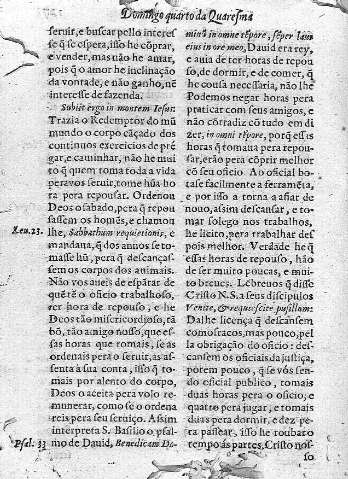 Domingo quarto da Quaresma
seruir, e buscar pello interes
se q̃ se espera, isso he cõprar,
e vender, mas não he amar,
pois q̃ o amor he inclinação
da vontade, e não ganho, nẽ
interesse de fazenda.
Subijt ergo in montem Iesus.
Trazia o Redemptor do mũ
mundo o corpo cãçado dos
continuos exercicios de prê
gar, e caminhar, não he mui
to q̃ quem toma toda a vida
pera vos seruir, tome hũa ho
ra pera repousar. Ordenou
Deos o sabado, pera q̃ repou
sassem os homẽs, e chamou
Leu. 23.
lhe, Sabbathum requietionis, e
mandaua, q̃ dos annos se to-
masse hũ, pera q̃ descanças-
sem os corpos dos animais.
Não vos aueis de espãtar de
quẽ tẽ o officio trabalhoso,
ter hora de repouso, e he
Deos tão misericordioso, tã
bõ, tão amigo nosso, que es-
sas horas que tomais, se as
ordenais pera o seruir, as as-
senta à sua conta, isso q̃ to-
mais por alento do corpo,
Deos o aceita pera volo re-
munerar, como se o ordena
reis pera seu seruiço. Assim
interpreta S. Basilio o psal-
Psal. 33
mo de Dauid, Benedicam Do-
minũ in omni tẽpore, sẽper laus
eius in ore meo, Dauid era rey,
e auia de ter horas de repou
so, de dormir, e de comer, q̃
he cousa necessaria, não lhe
Podemos negar horas pera
praticar com seus amigos, e
não cõtradiz cõ tudo em di
zer, in omni tẽpore, porq̃ essas
horas q̃ tomaua pera repou-
sar, erão pera cõprir melhor
cõ seu officio. Ao official bo-
tase facilmente a ferramẽta,
e por isso a torna a afiar de
nouo, assim descansar, e to
mar folego nos trabalhos,
he licito, pera trabalhar des
pois melhor. Verdade he q̃
essas horas de repouso, hão
de ser muito poucas, e mui-
to breues. Lẽbreuos q̃ disse
Cristo N. S. a seus discipulos
Venite, & requiescite pusillum:
Dalhe licença q̃ descansem
como fracos, mas pouco, pel
la obrigação do officio: des-
cansem os officiais da justiça,
porem pouco, q̃ se vòs sen-
do official publico, tomais
duas horas pera o officio, e
quatro pera jugar, e tomais
duas pera dormir, e dez pe-
ra passear, isso he roubar o
tempo ás partes. Cristo nos-
so